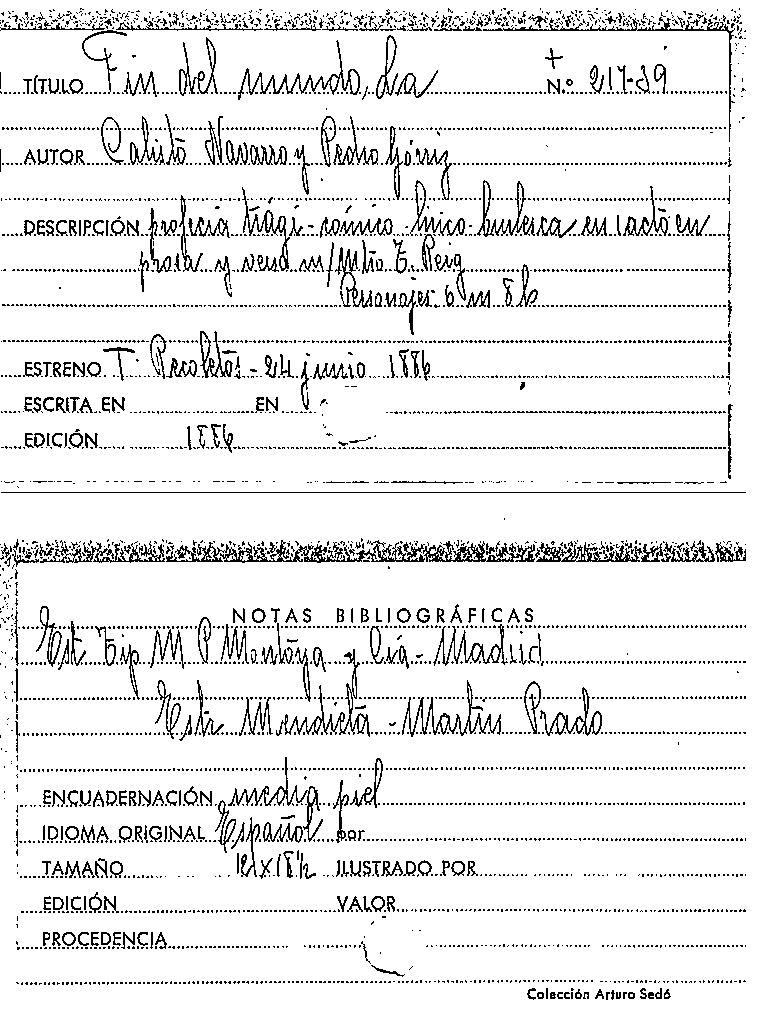 TÍTULO Fin del mundo, La + N.º 217-39
AUTOR Calisto Navarro y Pedro Górriz
DESCRIPCIÓN profecia trági-cómico-lírico-burlesca en 1 acto en
prosa y verso m/Mtro T. Reig
Personajes. 6 m 8 h
ESTRENO T. Recoletos - 24 junio 1886
ESCRITA EN EN
EDICIÓN 1886
NOTAS BIBLIOGRÁFICAS
Est Tip M P Montoya y Cía - Madrid
Estr Mendieta - Martin Prado
ENCUADERNACIÓN media piel
IDIOMA ORIGINAL Español por
TAMAÑO 12 x 18½ ILUSTRADO POR
EDICIÓN VALOR
PROCEDENCIA
Colección Arturo Sedó